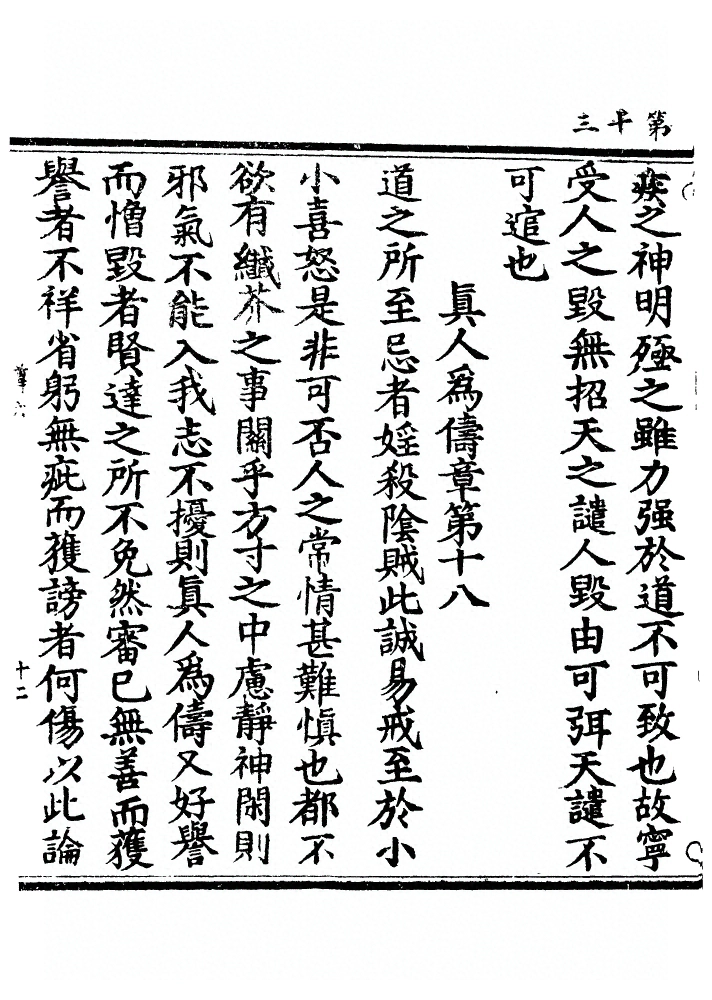 第早三
疾之神明殛之雖力强於道不可致也故寧
受人之毀無招天之譴人毀由可弭天譴不
可逭也
眞人爲儔章第十八
道之所至忌者婬殺陰賊此誠易戒至於小
小喜怒是非可否人之常情甚難愼也都不
欲有纖芥之事關乎方寸之中慮靜神閑則
邪氣不能入我志不擾則眞人爲儔又好譽
而憎毀者賢達之所不免然審己無善而獲
譽者不祥省躬無疵而獲謗者何傷以此論
十二